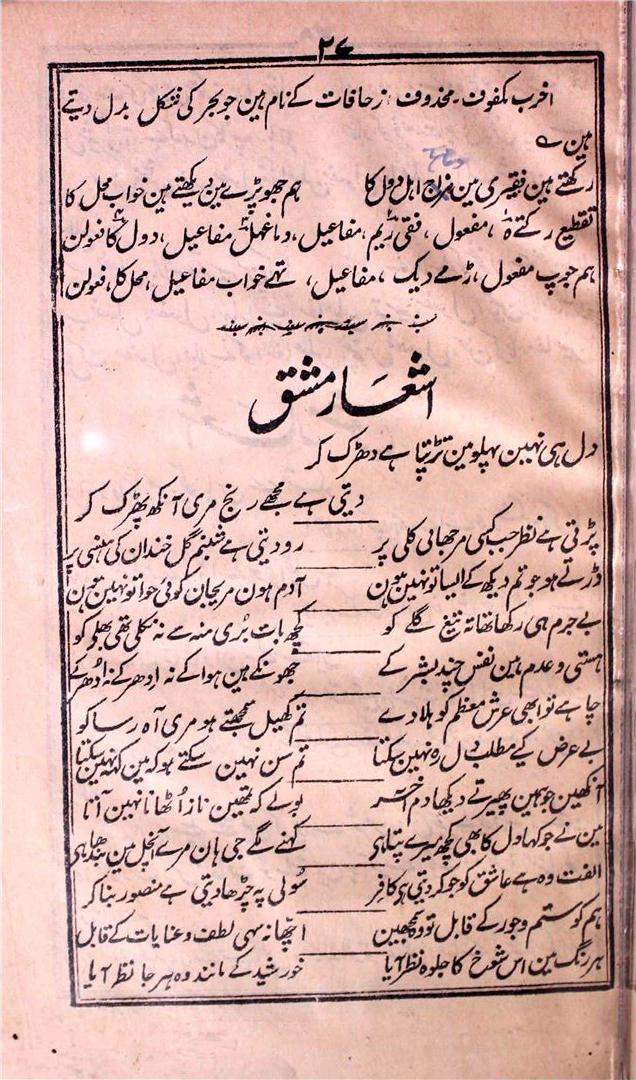 ۲۷
اخرب مکفوف۔ محذوف : زحافات کے نام ہین جو بحر کی شکل بدل دیتے
ہین ے
رکھتے ہین فقیری مین مزاج اہل دول کا ہم جھوپڑے مین دیکھتے ہین خواب محل کا
تقطیع رکتے ہ ، مفعول ، فقی ریم ، مفاعیل ، مفاعیل ، دول کا فعولن
ہم جوپ مفعول ، ڑمے دیک ، مفاعیل ، تہے خواب مفاعیل ، محل کا ، فعولن
اشعار مشق
دل ہی نہین پہلو مین تڑپتا ہے دھڑک کر
دیتی ہے مجھے رنج مری آنکھ پھڑک کر
پڑتی ہے نظر جب کسی مرجھائی کلی پر رو دیتی ہے شبنم گل خندان کی ہنسی پر
ڈرتے ہو جو تم دیکھ کے ایسا تو نہین ہون آدم ہون مریجان کوئی حوا تو نہین ہون
بے جرم ہی رکھا تھا تہ تیغ گلے کو کچھ بات بُری منہ سے نہ نکلی تھی بھلے کو
ہستی و عدم ہین نفس چند بشر کے جھونکے ہین ہوا کے نہ ادھر کے نہ اُدھر کے
چاہے تو ابھی عرش معظم کو ہلا دے تم کھیل سمجھتے ہو مری آہ رسا کو
بے عرض کیے مطلب دل رہ نہین سکتا تم سن نہین سکتے ہو کہ مین کہہ نہین سکتا
آنکھین جو ہمین پھیرتے دیکھا دم آخر بولے کہ تمھین ناز اُٹھانا نہین آتا
مین نے جو کہا دل کا بھی کچھ تیرے پتا ہی کہنے لگے جی ہان مرے آنچل مین بندھا ہی
الفت وہ ہے عاشق کو جو کر دیتی ہی کافر سُولی پہ چڑھا دیتی ہے منصور بنا کر
ہم کو ستم و جور کے قابل تو وہ سمجھین اچھا نہ سہی لطف و عنایات کے قابل
ہر رنگ مین اس شوخ کا جلوہ نظر آیا خورشید کے مانند وہ ہر جا نظر آیا